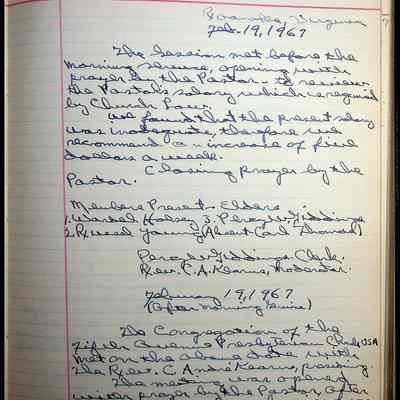 Roanoke, Virginia
Feb. 19, 1967
The Session met before the
morning service, opening with
prayer by the Pastor - to review
the Pastor's salary which is required
by Church Law.
We found that the present salary
was inadequate, therefore we
recommend an increase of five
dollars a week.
Closing prayer by the
Pastor.
Members Present - Elders
1. Wardel Halsey 3. Percy W. Giddings
2. Young (Absent Carl Thomas)
Percy W. Giddings Clerk.
Rev. C. A. Kearns, Moderator.
February 19, 1967
(After morning service)
The Congregation of the
Fifth Avenue Presbyterian Church, USA
met on the above date with
the Rev. C. André Kearns, presiding
The meeting was opened
with prayer by the Pastor, after